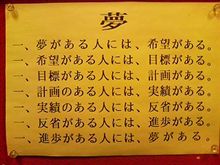 夢
一、夢がある人には、希望がある。
一、希望がある人には、目標がある。
一、目標がある人には、計画がある。
一、計画のある人には、実績がある。
一、実績のある人には、反省がある。
一、反省がある人には、進歩がある。
一、進歩がある人には、夢がある。